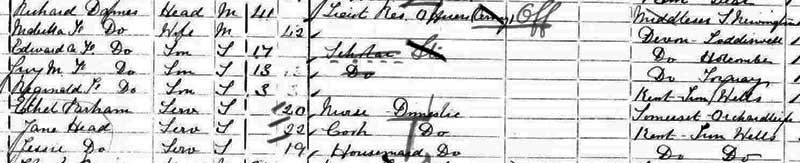 Richard Head M 41 Lieut Res. Officers (Army) Off Middlesex
Do Wife M 42 Devon Loddiswell
Edward Do Son S 17 Scholar Do Holcombe
Guy M. F. Do Son S 13 Do Do Torquay
Reginald F. Do Son S 3 Kent Tun Wells
Ethel Farham Serv S 20 Nurse Domestic Somerset Orchardleigh
Jane Head Serv S 22 Cook Do Kent Tun Wells
Jessie Do Serv S 19 Housemaid Do Do Do